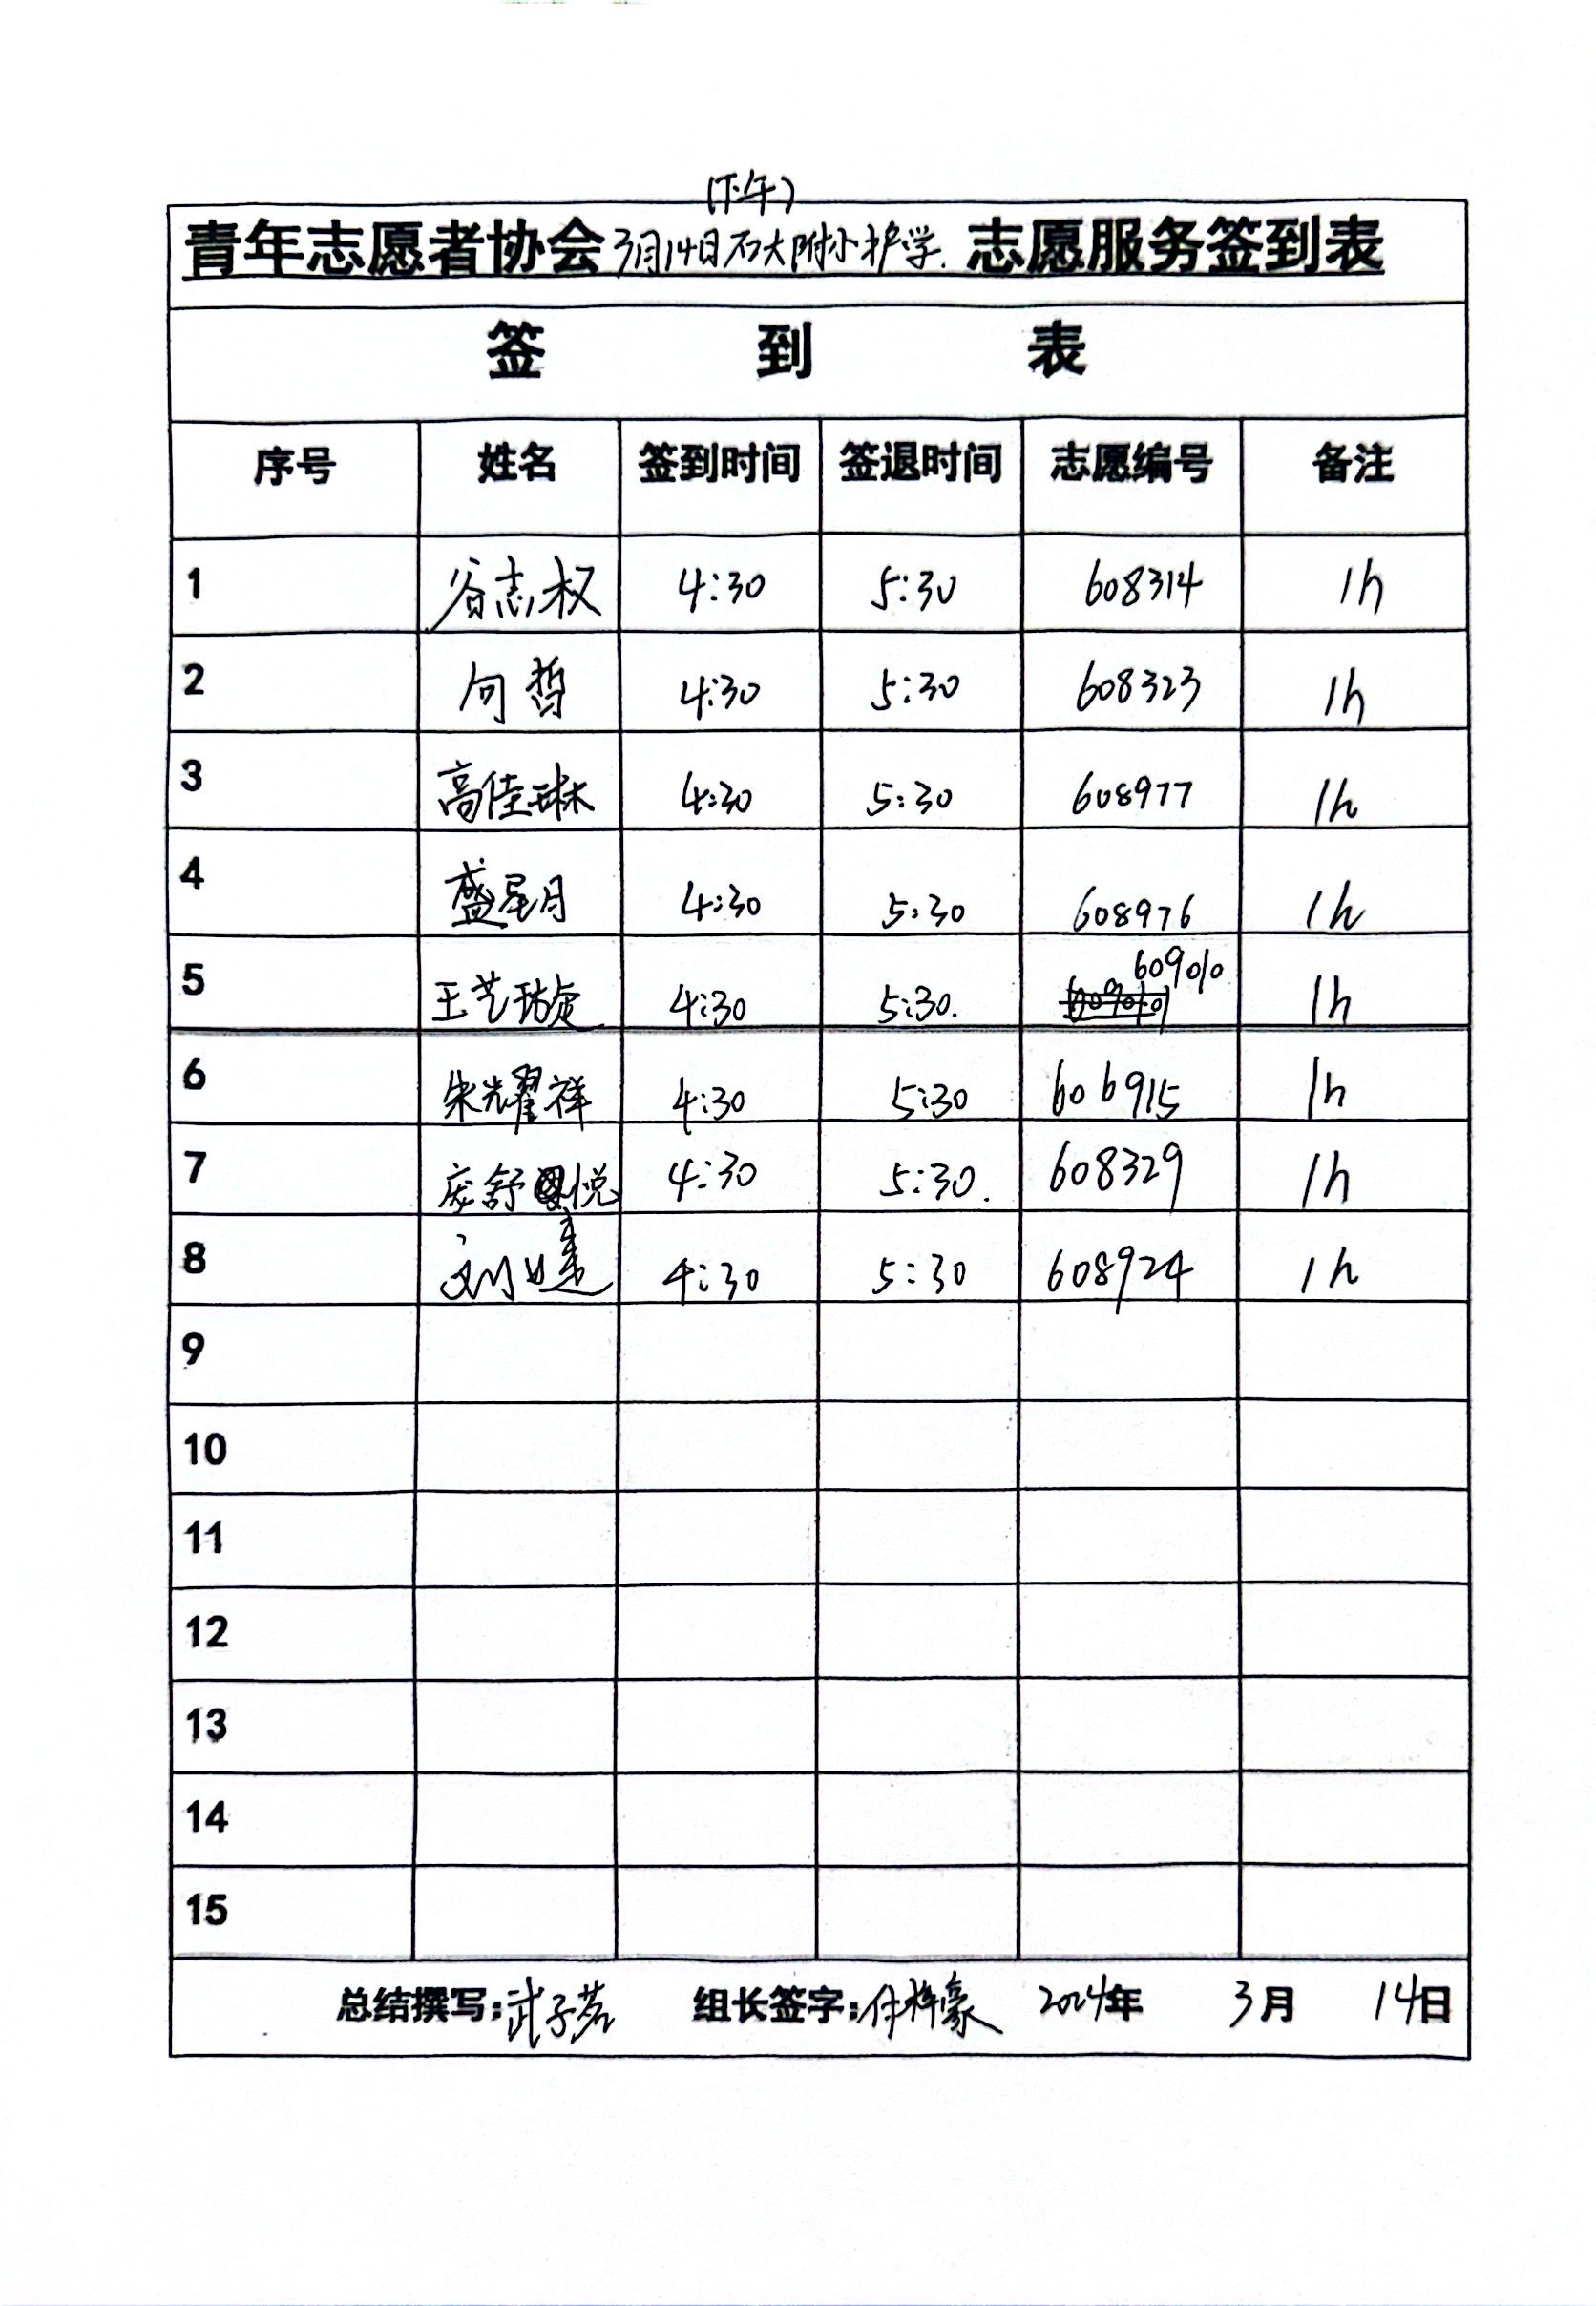 (下午)
青年志愿者协会3月14日石大附小护学.志愿服务签到表
签 到 表
序号 姓名 签到时间 签退时间 志愿编号 备注
1 谷志权 4:30 5:30 608314 1h
2 向哲 4:30 5:30 608323 1h
3 高佳琳 4:30 5:30 608977 1h
4 盛星月 4:30 5:30 608976 1h
5 王艺璇 4:30 5:30. 609010 1h
6 朱耀祥 4:30 5:30 606915 1h
7 庞舒悦 4:30 5:30. 608329 1h
8 刘婕 4:30 5:30 608924 1h
9
10
11
12
13
14
15
总结撰写:武子茗 组长签字:付梓豪 2024年 3月 14日